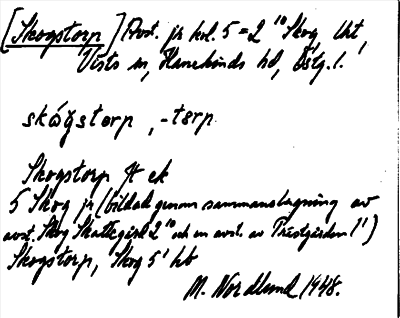 [Skogstorp] Avst. fr kol. 5 = 2 10 Skog Uht,
Vists sn, Hanekinds hd, Östg. l.
skógstorp, -tsrp
Skogstorp H ek
5 Skog fr (bildat genom sammanslagning av
avst. Skog Skattegård 2 10 och en avst. av Prästgården 1 1)
Skogstorp, Skog 5 1 hb
M. Nordlund 1948.